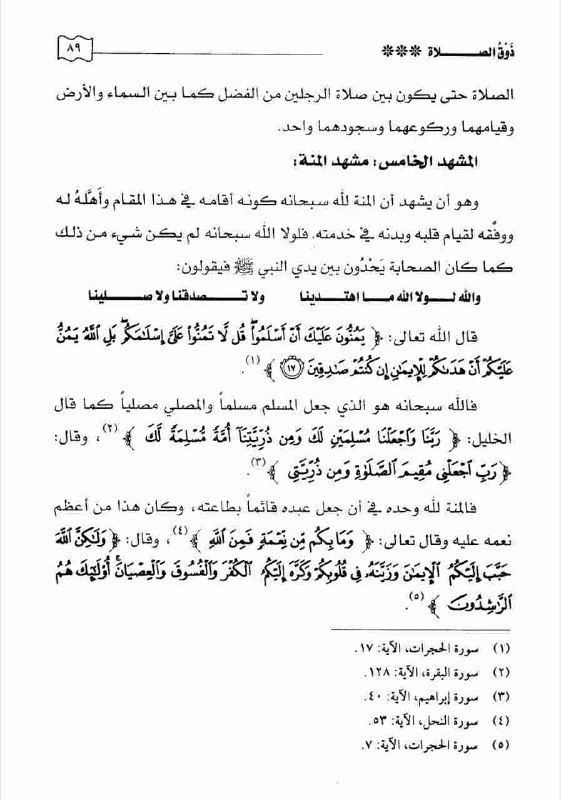 ذَوْقُ الصـــــلاة ***
٨٩
الصلاة حتى يكون بين صلاة الرجلين من الفضل كما بين السماء والأرض
وقيامهما وركوعهما وسجودهما واحد.
المشهد الخامس: مشهد المنة:
وهو أن يشهد أن المنة لله سبحانه كونه أقامه في هذا المقام وأهَّلهُ له
ووفَّقه لقيام قلبه وبدنه في خدمته. فلولا الله سبحانه لم يكن شيء من ذلك
كما كان الصحابة يَحْدُون بين يدي النبي ﷺ فيقولون:
والله لـولا الله مـا اهتدينا ولا تـصدقنا ولا صـلينا
قال الله تعالى: ﴿ يَمُنُّونَ عَلَيْكَ أَنْ أَسْلَمُوا۟ ۖ قُل لَّا تَمُنُّوا۟ عَلَىَّ إِسْلَـٰمَكُم ۖ بَلِ ٱللَّهُ يَمُنُّ
عَلَيْكُمْ أَنْ هَدَىٰكُمْ لِلْإِيمَـٰنِ إِن كُنتُمْ صَـٰدِقِينَ ۝١٧ ﴾ (١).
فالله سبحانه هو الذي جعل المسلم مسلماً والمصلي مصلياً كما قال
الخليل: ﴿ رَبَّنَا وَٱجْعَلْنَا مُسْلِمَيْنِ لَكَ وَمِن ذُرِّيَّتِنَآ أُمَّةً مُّسْلِمَةً لَّكَ ﴾ (٢)، وقال:
﴿ رَبِّ ٱجْعَلْنِى مُقِيمَ ٱلصَّلَوٰةِ وَمِن ذُرِّيَّتِى ﴾ (٣).
فالمنة لله وحده في أن جعل عبده قائماً بطاعته، وكان هذا من أعظم
نعمه عليه وقال تعالى: ﴿ وَمَا بِكُم مِّن نِّعْمَةٍ فَمِنَ ٱللَّهِ ﴾ (٤)، وقال: ﴿ وَلَـٰكِنَّ ٱللَّهَ
حَبَّبَ إِلَيْكُمُ ٱلْإِيمَـٰنَ وَزَيَّنَهُۥ فِى قُلُوبِكُمْ وَكَرَّهَ إِلَيْكُمُ ٱلْكُفْرَ وَٱلْفُسُوقَ وَٱلْعِصْيَانَ ۚ أُو۟لَـٰٓئِكَ هُمُ
ٱلرَّٰشِدُونَ ﴾ (٥).
(١) سورة الحجرات، الآية: ١٧.
(٢) سورة البقرة، الآية: ١٢٨.
(٣) سورة إبراهيم، الآية: ٤٠.
(٤) سورة النحل، الآية: ٥٣.
(٥) سورة الحجرات، الآية: ٧.